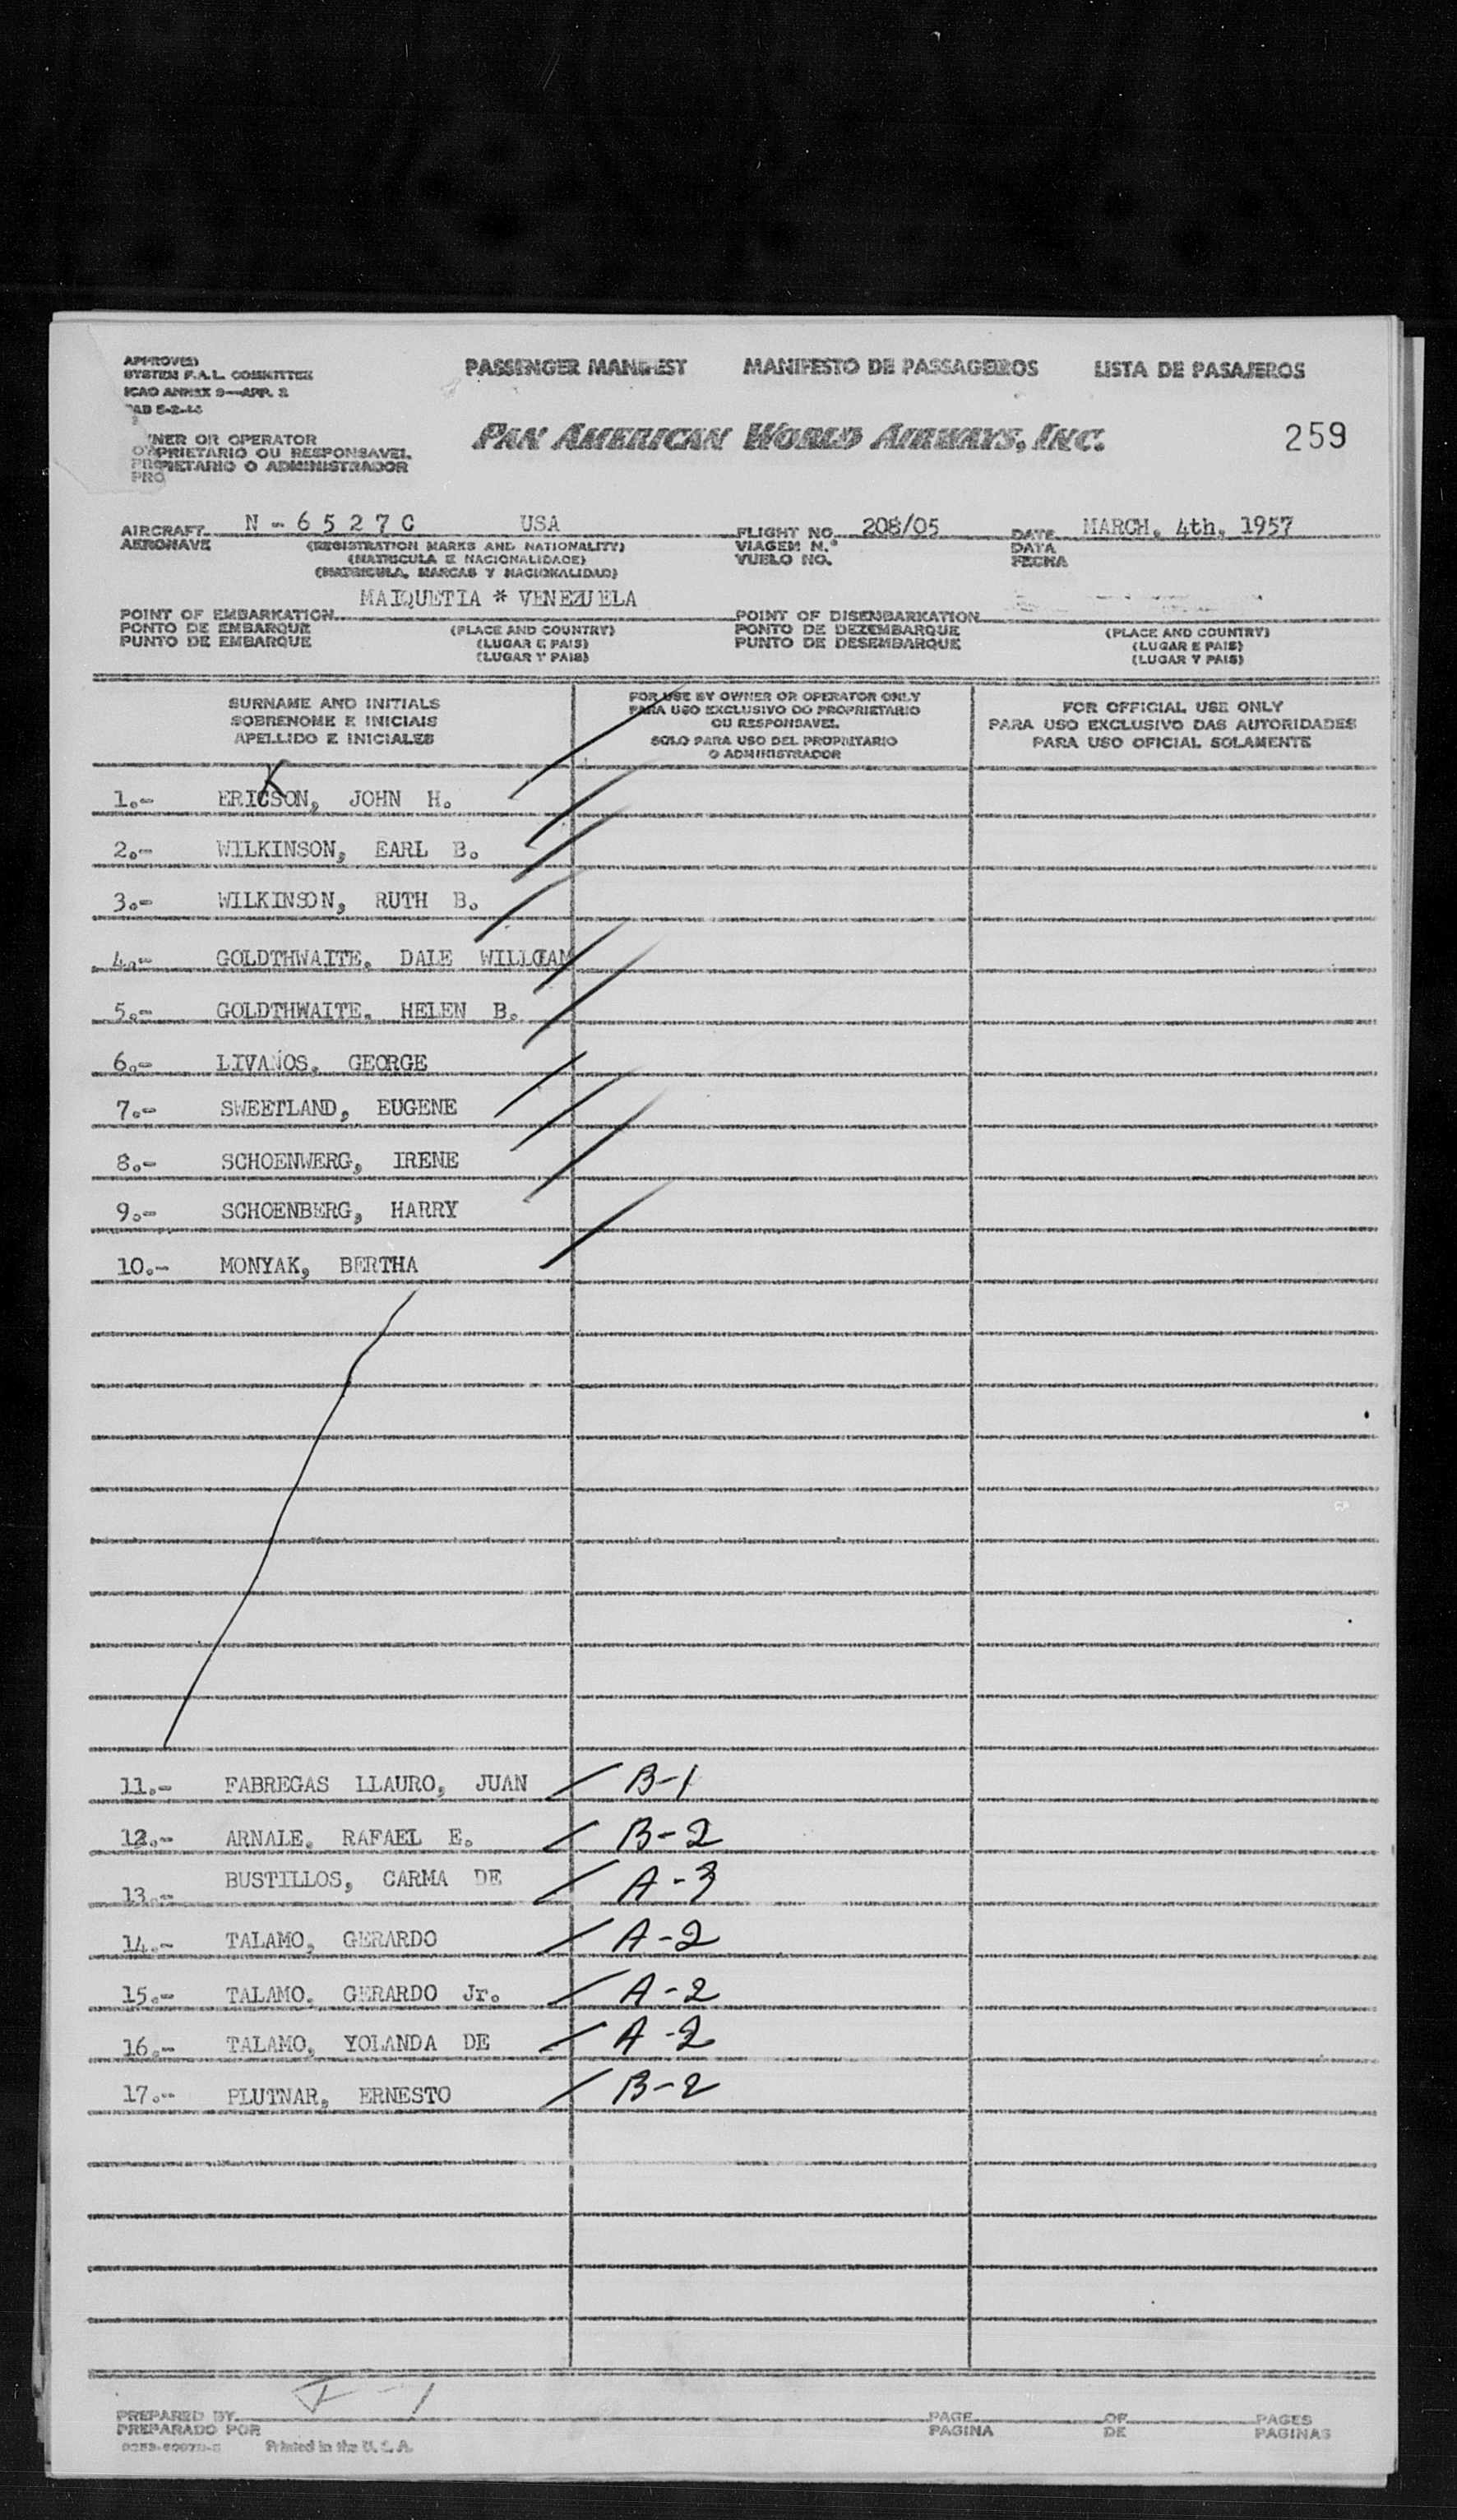 APPROVED
SYSTEM F.A.L. COMMITTEE
ICAO ANNEX 9—APP. 2
PASSENGER MANIFEST MANIFESTO DE PASSAGEIROS LISTA DE PASAJEROS
PAN AMERICAN WORLD AIRWAYS, INC.
259
NER OR OPERATOR
PRIETARIO OU RESPONSAVEL
PROPIETARIO O ADMINISTRADOR
PRO
AIRCRAFT N - 6 5 2 7 C USA FLIGHT NO. 208/05 DATE MARCH, 4th, 1957
AERONAVE (REGISTRATION MARKS AND NATIONALITY) VIAGEM N.º DATA
(MATRICULA E NACIONALIDADE) VUELO NO. FECHA
(MATRICULA, MARCAS Y NACIONALIDAD)
MAIQUETIA * VENEZUELA
POINT OF EMBARKATION POINT OF DISEMBARKATION
PONTO DE EMBARQUE (PLACE AND COUNTRY) PONTO DE DEZEMBARQUE (PLACE AND COUNTRY)
PUNTO DE EMBARQUE (LUGAR E PAIS) PUNTO DE DESEMBARQUE (LUGAR E PAIS)
(LUGAR Y PAIS) (LUGAR Y PAIS)
SURNAME AND INITIALS
SOBRENOME E INICIAIS
APELLIDO E INICIALES
FOR USE BY OWNER OR OPERATOR ONLY
PARA USO EXCLUSIVO DO PROPRIETARIO
OU RESPONSAVEL
SOLO PARA USO DEL PROPIETARIO
O ADMINISTRADOR
FOR OFFICIAL USE ONLY
PARA USO EXCLUSIVO DAS AUTORIDADES
PARA USO OFICIAL SOLAMENTE
K
1.- ERICSON, JOHN H.
2.- WILKINSON, EARL B.
3.- WILKINSON, RUTH B.
4.- GOLDTHWAITE, DALE WILLIAM
5.- GOLDTHWAITE, HELEN B.
6.- LIVANOS, GEORGE
7.- SWEETLAND, EUGENE
8.- SCHOENWERG, IRENE
9.- SCHOENBERG, HARRY
10.- MONYAK, BERTHA
11.- FABREGAS LLAURO, JUAN B-1
12.- ARNALE, RAFAEL E. B-2
13.- BUSTILLOS, CARMA DE A-3
14.- TALAMO, GERARDO A-2
15.- TALAMO, GERARDO Jr. A-2
16.- TALAMO, YOLANDA DE A-2
17.- PLUTNAR, ERNESTO B-2
PREPARED BY PAGE OF PAGES
PREPARADO POR PAGINA DE PAGINAS
Printed in the U. S. A.